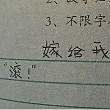 3、不限字
嫁给我
"滚!"